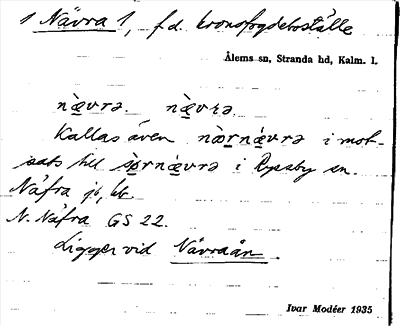 1 Nävra 1, f.d. kronofogdeboställe
Ålems sn, Stranda hd, Kalm. l.
næ̀vrə. næ̀vrə.
Kallas även nòrnǽvrə i mot-
sats till sø̀rnǽvrə i Ryssby sn.
Näfra jb, kb
N. Näfra GS 22.
Ligger vid Nävraån.
Ivar Modéer 1935